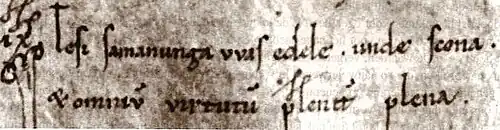 Tesi samanunga vvas edele . unde scona .
& omniū virtutū plenit̄ plena .